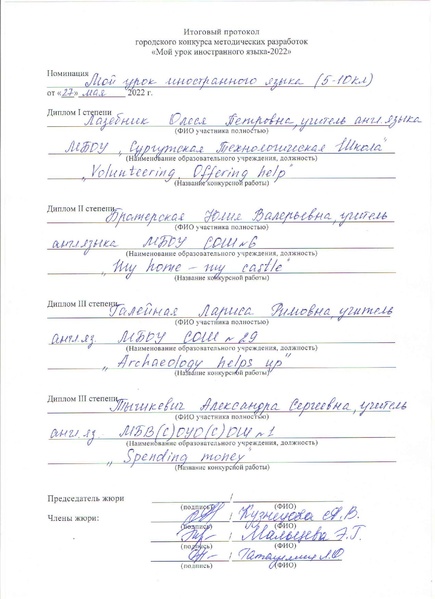 Итоговый протокол
городского конкурса методических разработок
«Мой урок иностранного языка-2022»
Номинация Мой урок иностранного языка (5-10кл)
от «27» мая 2022 г.
Диплом I степени
Лазебник Олеся Петровна, учитель англ языка
(ФИО участника полностью)
МБОУ „Сургутская Технологическая Школа"
(Наименование образовательного учреждения, должность)
„Volunteering. Offering help"
(Название конкурсной работы)
Диплом II степени
Братерская Юлия Валерьевна, учитель
(ФИО участника полностью)
англ языка МБОУ СОШ №6
(Наименование образовательного учреждения, должность)
„My home – my castle"
(Название конкурсной работы)
Диплом III степени
Галейная Лариса Римовна, учитель
(ФИО участника полностью)
англ яз. МБОУ СОШ №29
(Наименование образовательного учреждения, должность)
„Archaeology helps up"
(Название конкурсной работы)
Диплом III степени
Александра Сергеевна, учитель
(ФИО участника полностью)
англ яз. МБВ(С)ОУО(С)ОШ №1
(Наименование образовательного учреждения, должность)
„Spending money"
(Название конкурсной работы)
Председатель жюри /
(подпись) (ФИО)
Члены жюри: / Кузнецова А.В.
(подпись) (ФИО)
/ Мальцева Э.Г.
(подпись) (ФИО)
/
(подпись) (ФИО)